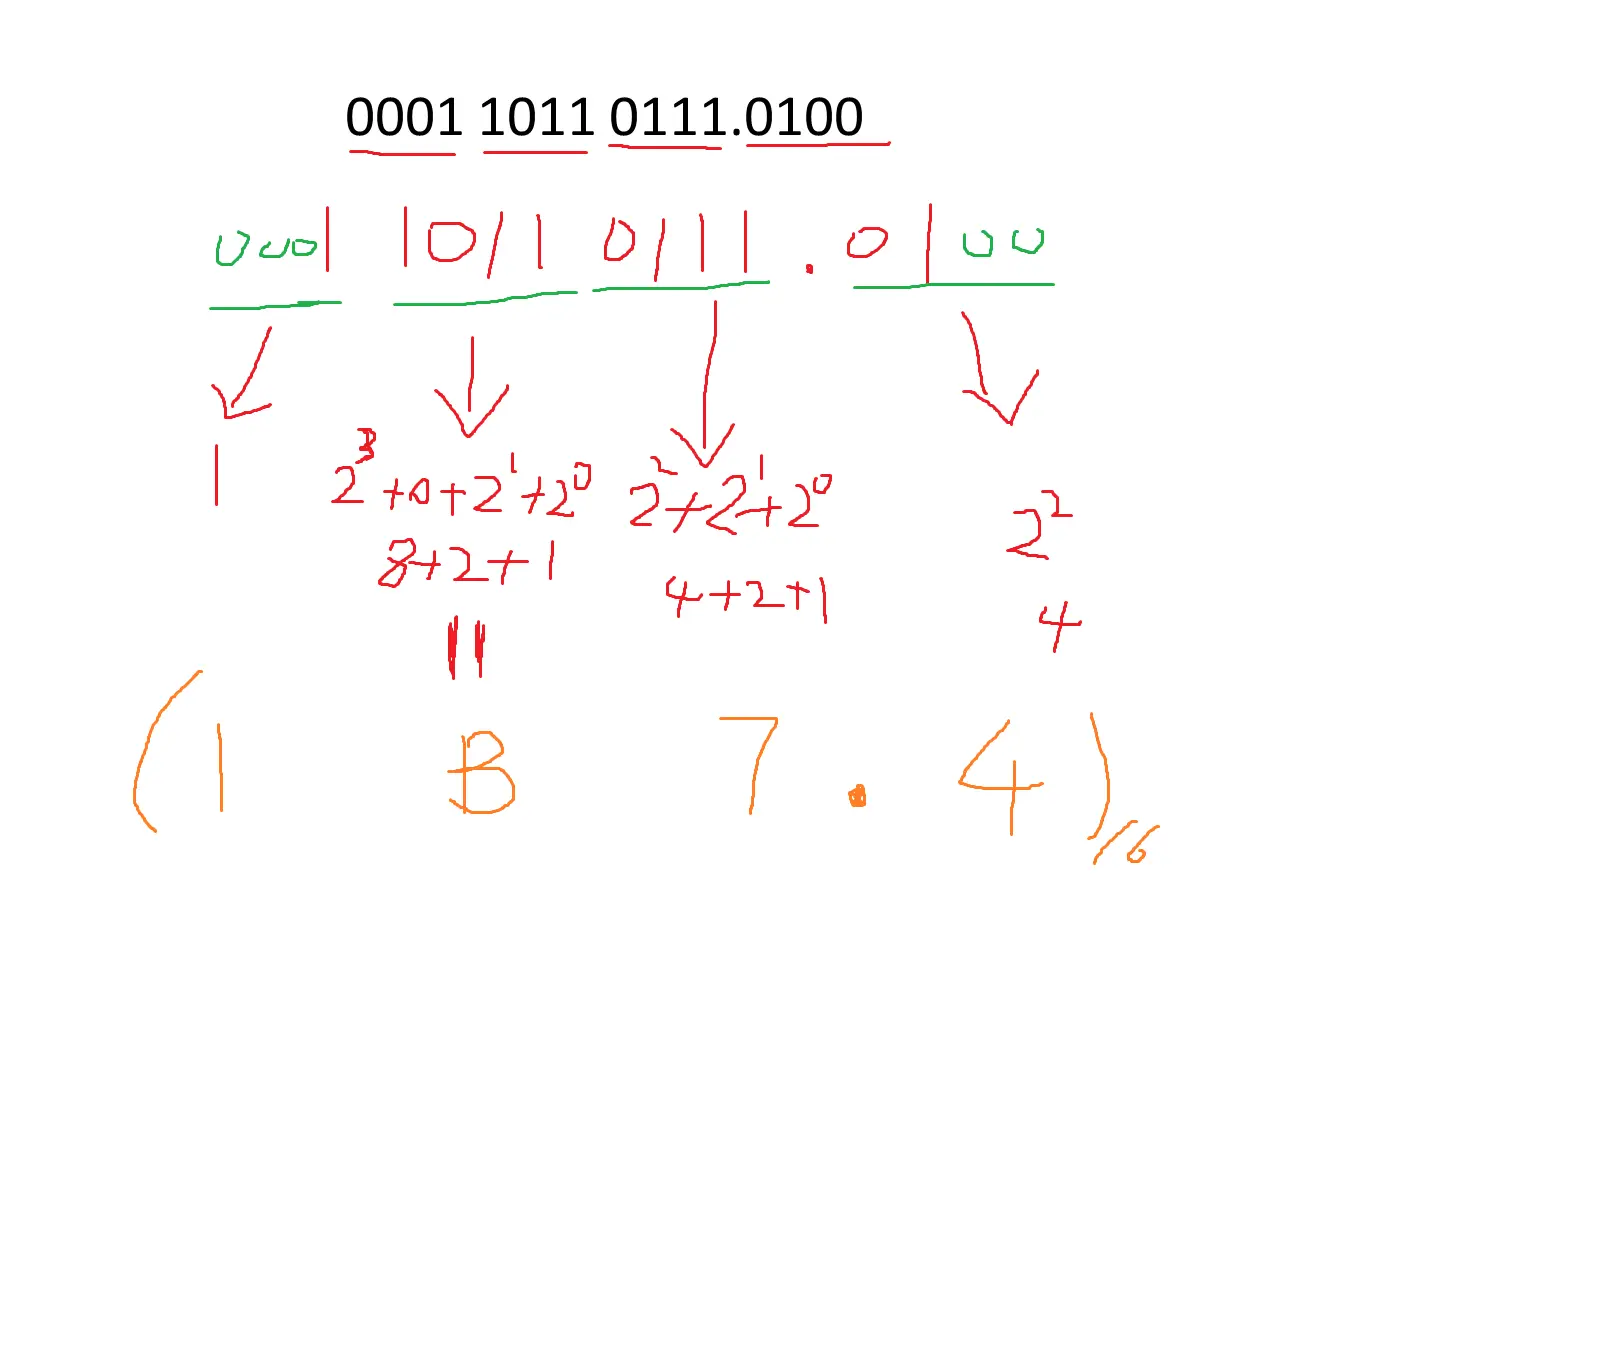 0001 1011 0111.0100
0001 1011 0111 . 0100
1 2³+0+2¹+2⁰ 2²+2¹+2⁰ 2²
8+2+1 4+2+1 4
11
(1 B 7 . 4)₁₆